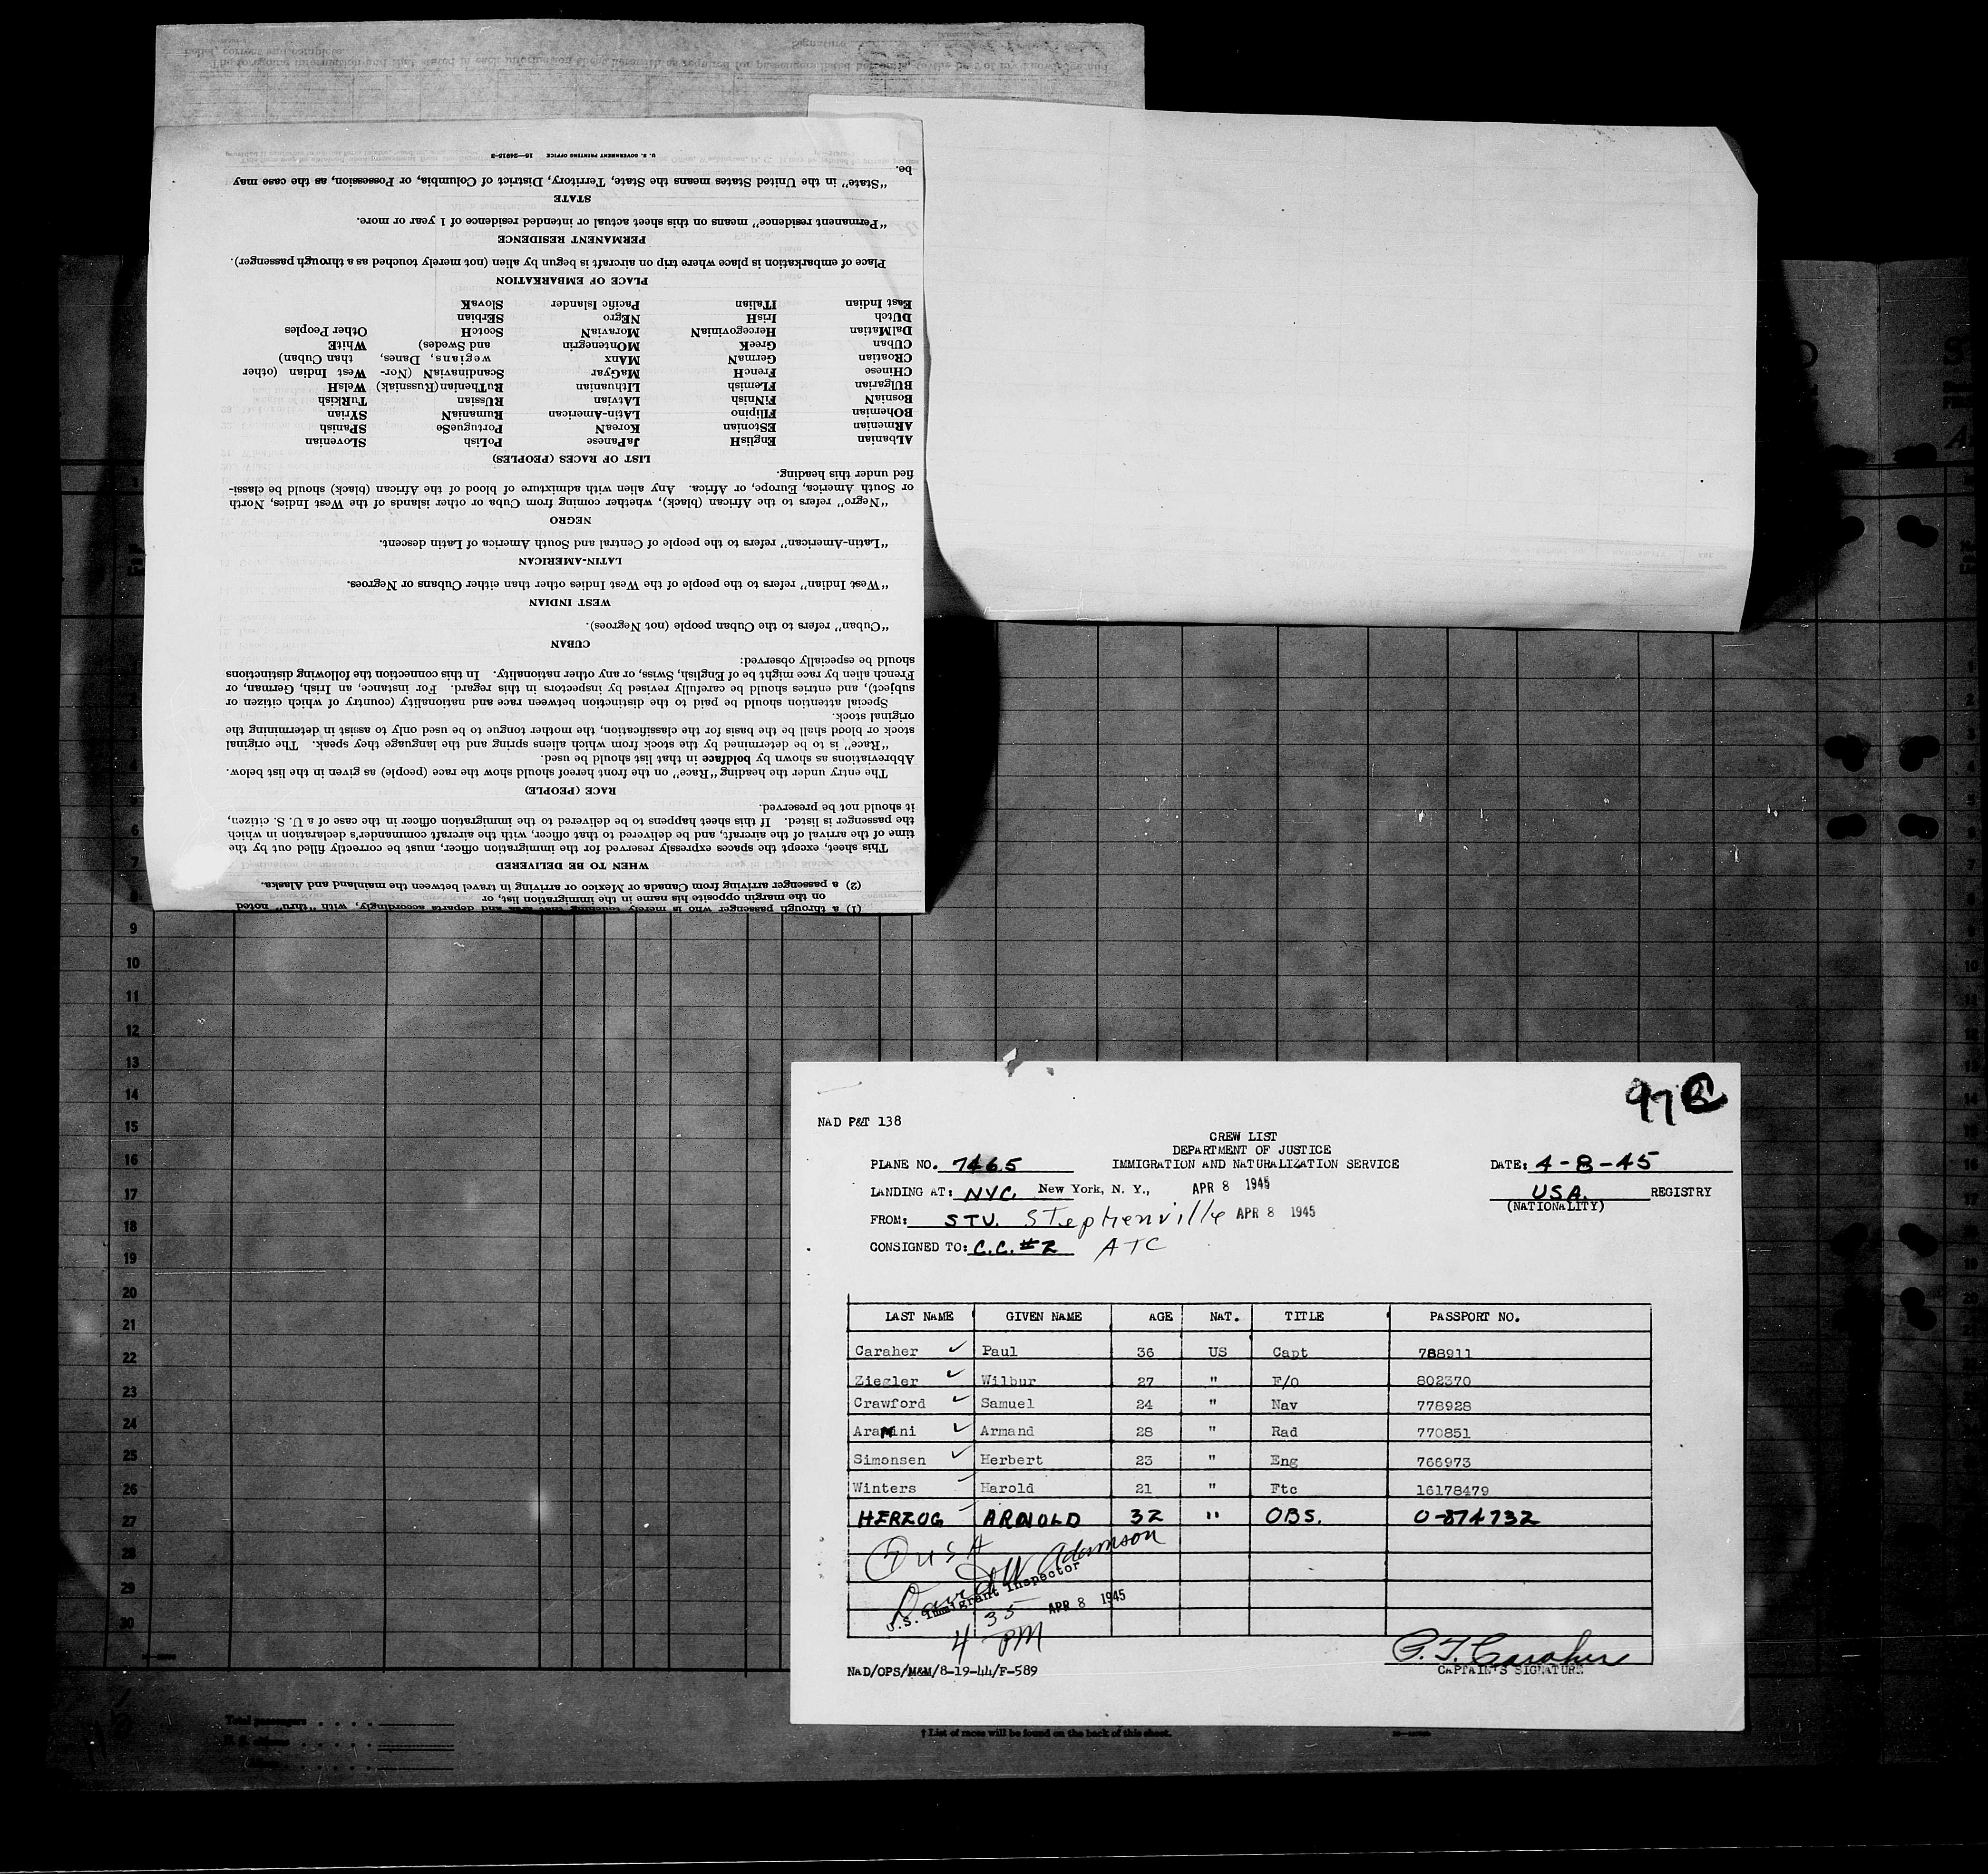 belief, correct and complete.
Signature
The foregoing information and that stated in each information sheet herewith as required for passengers listed hereunto, to the best of my knowledge and
(1) a through passenger who is merely and departs accordingly, with "thru" noted
on the margin opposite his name in the immigration list, or
(2) a passenger arriving from Canada or Mexico or arriving in travel between the mainland and Alaska.
WHEN TO BE DELIVERED
This sheet, except the spaces expressly reserved for the immigration officer, must be correctly filled out by the
time of the arrival of the aircraft, and be delivered to that officer, with the aircraft commander's declaration in which
the passenger is listed. If this sheet happens to be delivered to the immigration officer in the case of a U. S. citizen,
it should not be preserved.
RACE (PEOPLE)
The entry under the heading "Race" on the front hereof should show the race (people) as given in the list below.
Abbreviations as shown by boldface in that list should be used.
"Race" is to be determined by the stock from which aliens spring and the language they speak. The original
stock or blood shall be the basis for the classification, the mother tongue to be used only to assist in determining the
original stock.
Special attention should be paid to the distinction between race and nationality (country of which citizen or
subject), and entries should be carefully revised by inspectors in this regard. For instance, an Irish, German, or
French alien by race might be of English, Swiss, or any other nationality. In this connection the following distinctions
should be especially observed:
CUBAN
"Cuban" refers to the Cuban people (not Negroes).
WEST INDIAN
"West Indian" refers to the people of the West Indies other than either Cubans or Negroes.
LATIN-AMERICAN
"Latin-American" refers to the people of Central and South America of Latin descent.
NEGRO
"Negro" refers to the African (black), whether coming from Cuba or other islands of the West Indies, North
or South America, Europe, or Africa. Any alien with admixture of blood of the African (black) should be classi-
fied under this heading.
LIST OF RACES (PEOPLES)
ALbanian EnglisH JaPanese PoLish SLOvenian
ARMenian EStonian KoreaN PortugueSe SPanish
BOhemian FIlipino LAtin-American RumaniaN SYrian
BosniaN FiNnish LAtvian RUssian TuRkish
BUlgarian FLemish LIthuanian RuThenian (Russniak) WelsH
CHinese FrencH MaGyar ScandinaviaN (Nor- West Indian (other
CRoatian GermaN MAnx wegians, Danes, than Cuban)
CUban GreeK MOntenegrin and Swedes) WhitE
DalMatian HercegoviniaN MoraviaN ScotcH Other Peoples
DUtch IrisH NEgro SErbian
East Indian ITalian Pacific Islander SlovaK
PLACE OF EMBARKATION
Place of embarkation is place where trip on aircraft is begun by alien (not merely touched as a through passenger).
PERMANENT RESIDENCE
"Permanent residence" means on this sheet actual or intended residence of 1 year or more.
STATE
"State" in the United States means the State, Territory, District of Columbia, or Possession, as the case may
be.
U. S. GOVERNMENT PRINTING OFFICE 16—24915-2
9
10
11
12
13
14
15
16
17
18
19
20
21
22
23
24
25
26
27
28
29
30
Total passengers
U. S. citizens
Aliens
† List of races will be found on the back of this sheet.
97 C
NAD P&T 138
CREW LIST
DEPARTMENT OF JUSTICE
PLANE NO. 7465 IMMIGRATION AND NATURALIZATION SERVICE DATE: 4-8-45
LANDING AT: NYC. New York, N. Y., APR 8 1945 USA. REGISTRY
(NATIONALITY)
FROM: STV. Stephenville APR 8 1945
CONSIGNED TO: C.C. #2 ATC
LAST NAME GIVEN NAME AGE NAT. TITLE PASSPORT NO.
Caraher ✓ Paul 36 US Capt 788911
Ziegler ✓ Wilbur 27 " F/O 802370
Crawford ✓ Samuel 24 " Nav 778928
AraMini ✓ Armand 28 " Rad 770851
Simonsen ✓ Herbert 23 " Eng 766973
Winters Harold 21 " Ftc 16178479
HERZOG ARNOLD 32 " OBS. O-874732
7 USA
David W Adamson
U.S. Immigrant Inspector
APR 8 1945
4 35 PM
P. T. Caraher
NAD/OPS/M&M/8-19-44/F-589 CAPTAIN'S SIGNATURE